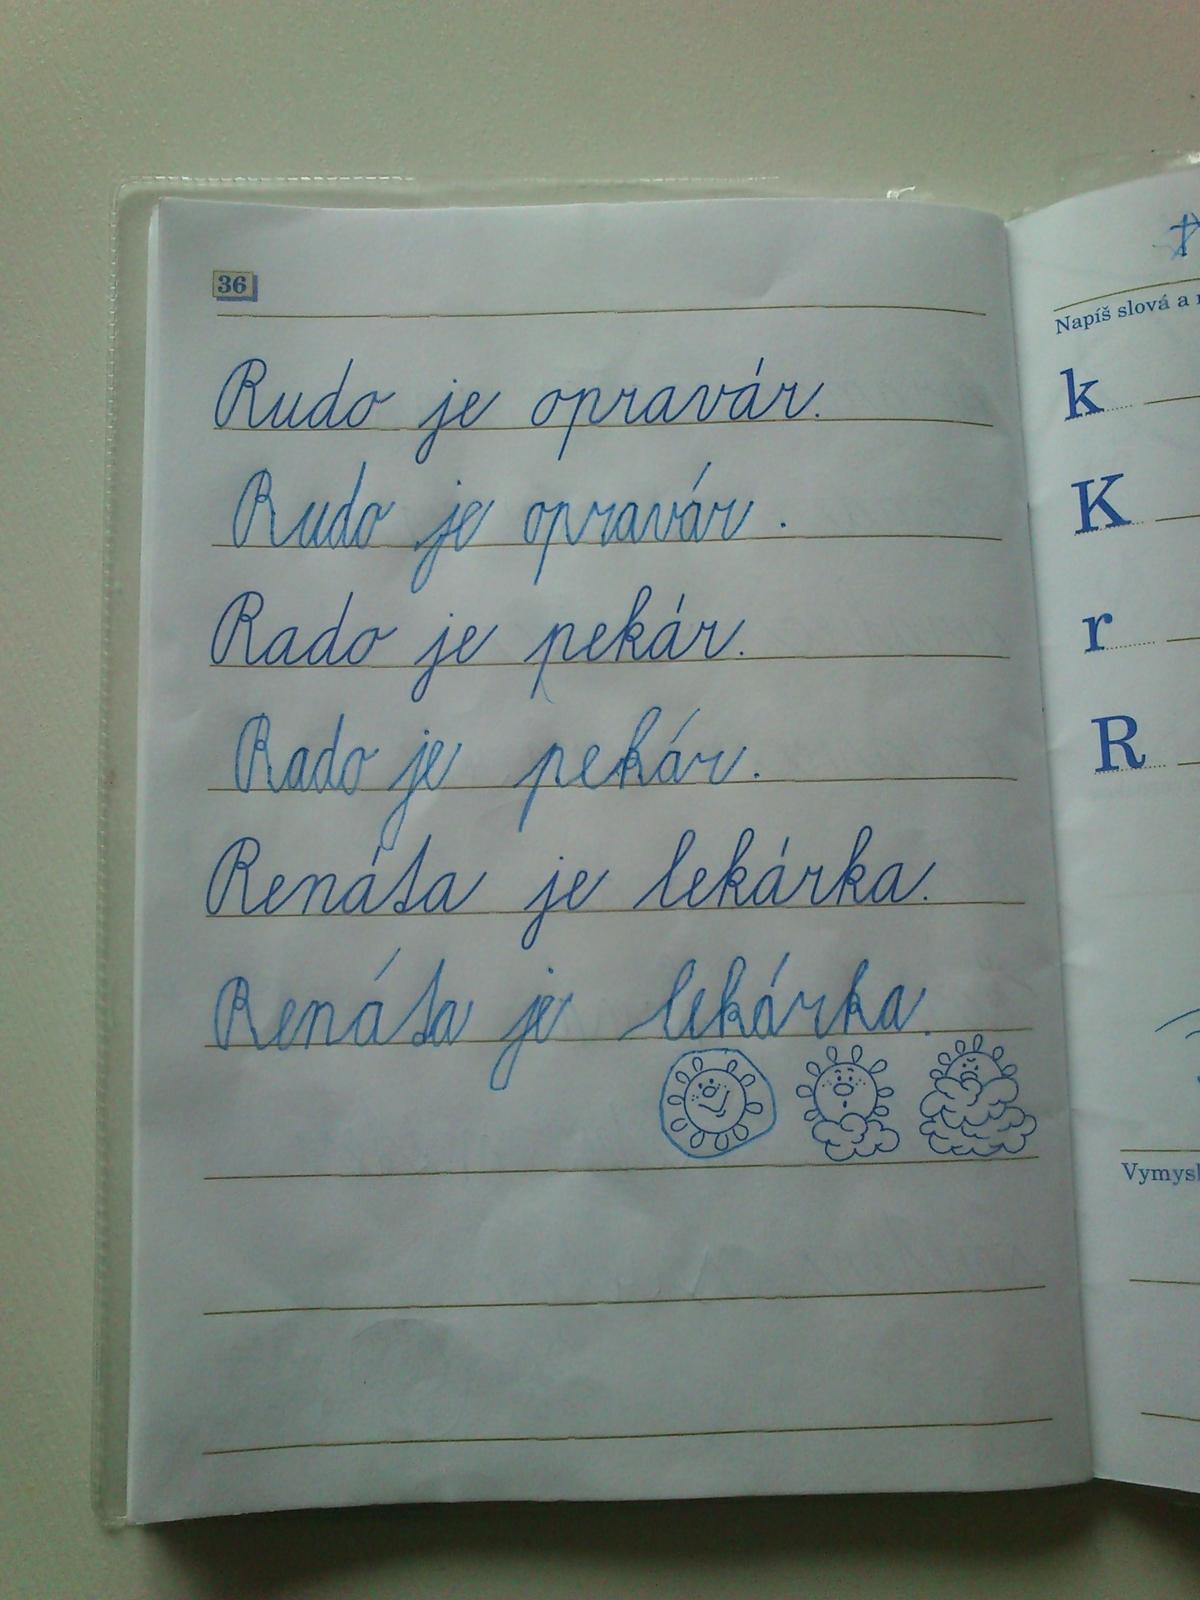 36
Rudo je opravár.
Rudo je opravár.
Rado je pekár.
Rado je pekár.
Renáta je lekárka.
Renáta je lekárka.
Napíš slová a
k
K
r
R